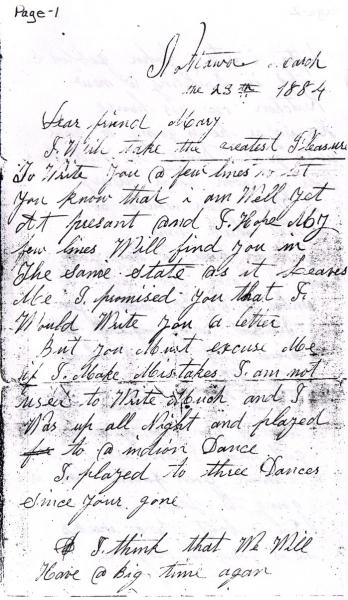 Page-1
Nottawa March
the 23th 1884
Dear friend Mary
I Will take the Greatest Pleasure
To Write You @ few lines to let
You know that i am Well yet
At present and I Hope My
few lines Will find you in
The same state as it Leaves
Me I promised you that I
Would Write you a letter
But you Must excuse Me
if I Make Mistakes I am not
used to Write Much and I
Was up all Night and played
to @ indion Dance
I played to three Dances
since your gone
I think that We Will
Have @ Big time again